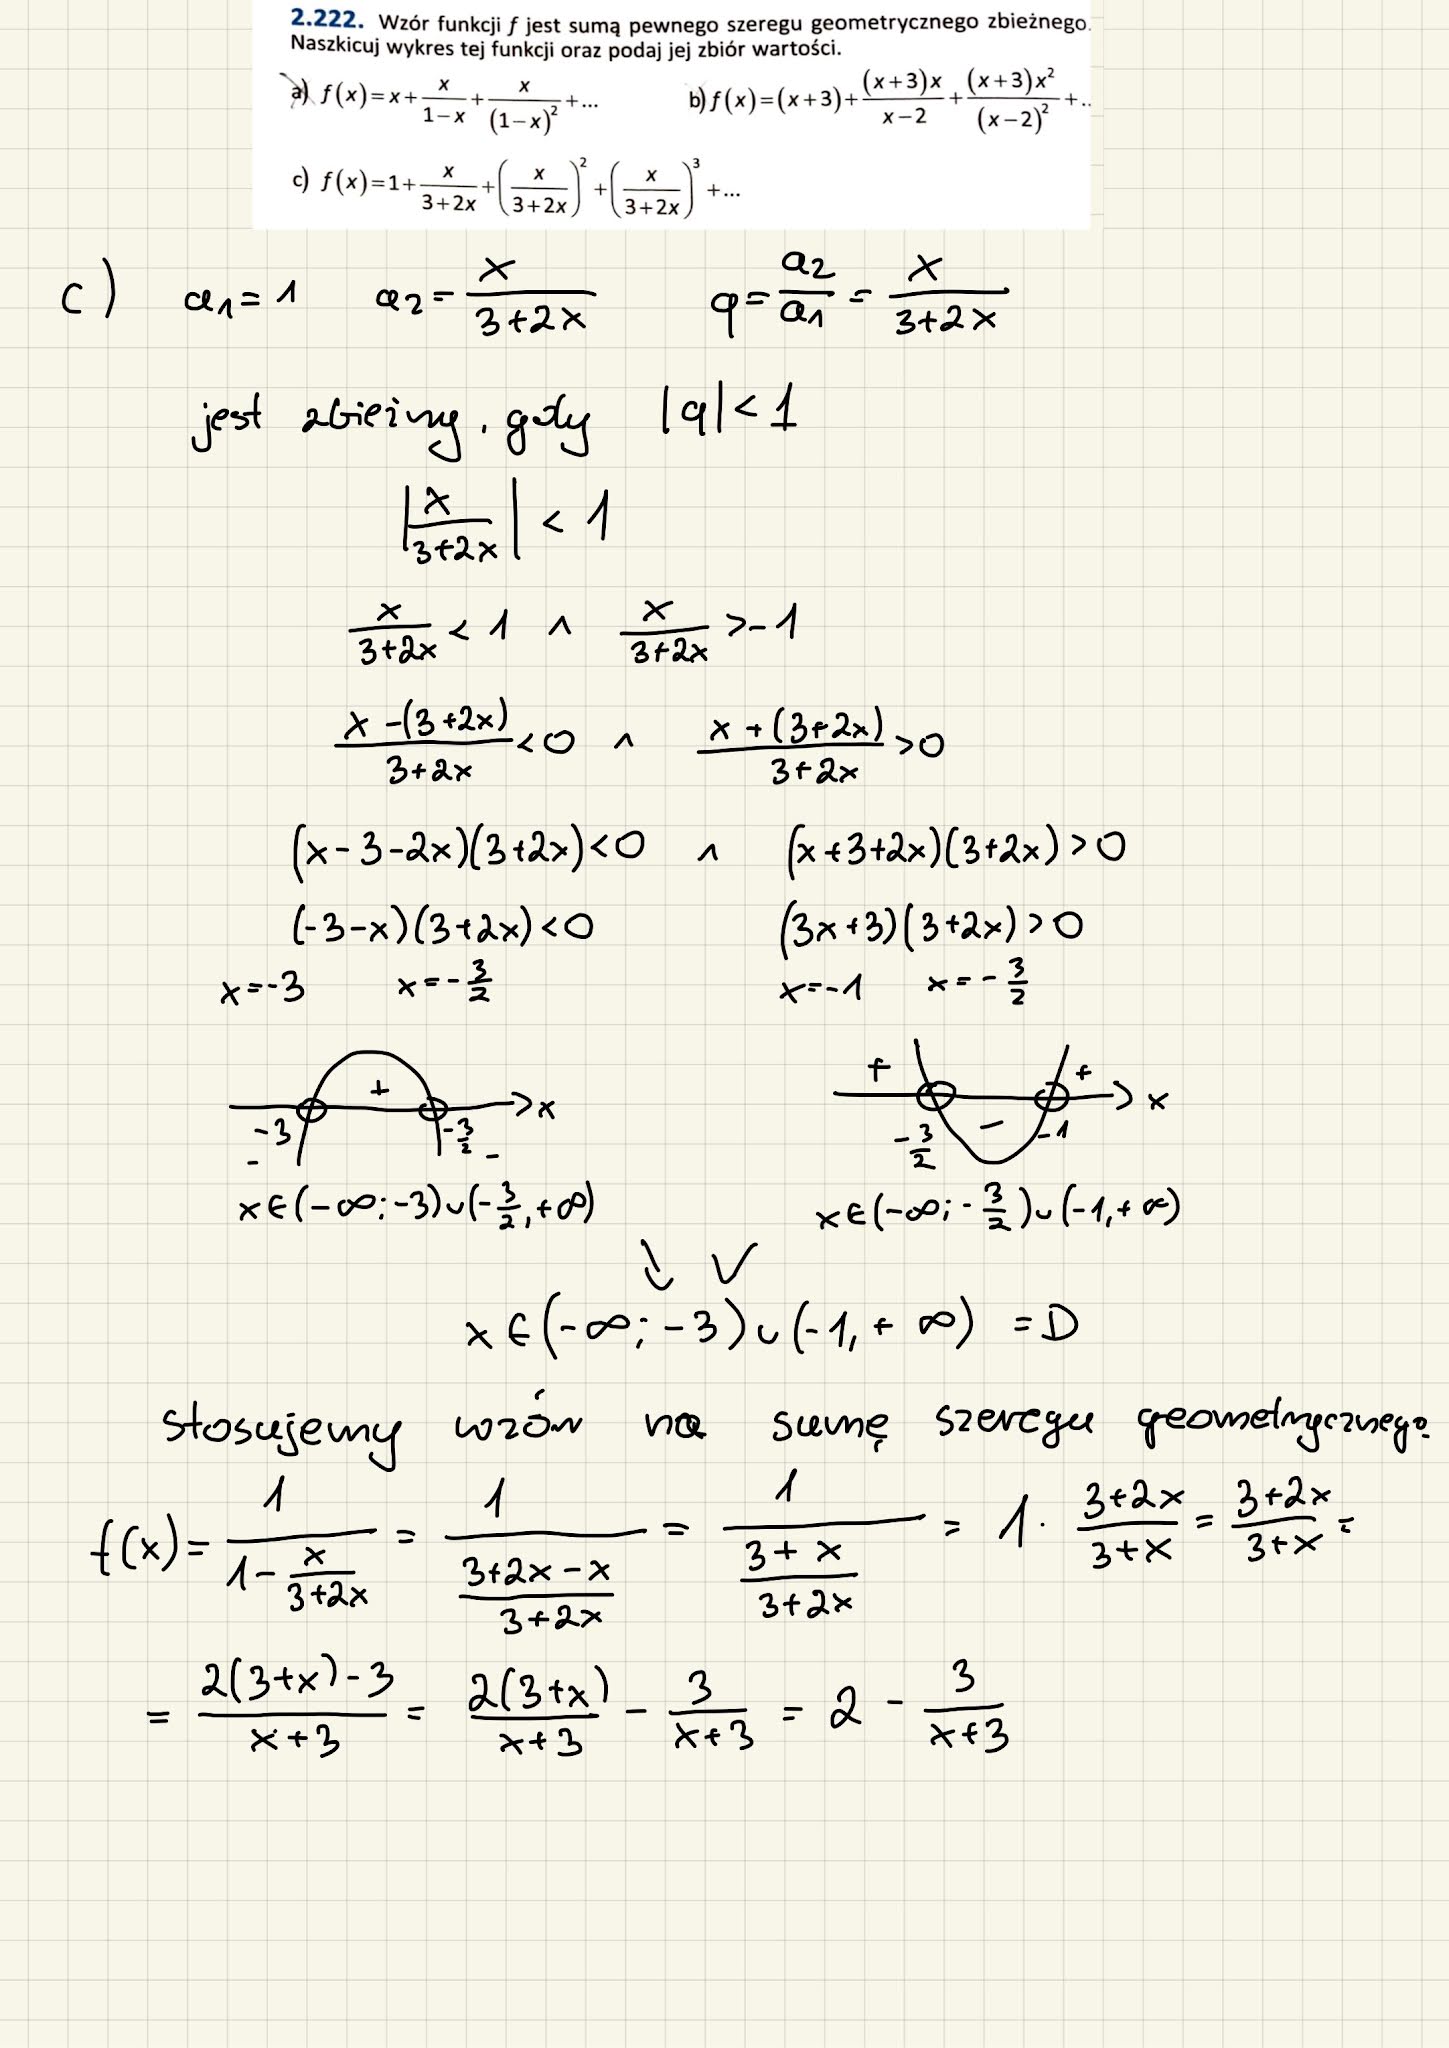 2.222. Wzór funkcji f jest sumą pewnego szeregu geometrycznego zbieżnego.
Naszkicuj wykres tej funkcji oraz podaj jej zbiór wartości.
a) f(x)=x+x/(1−x)+x/(1−x)²+... b) f(x)=(x+3)+(x+3)x/(x−2)+(x+3)x²/(x−2)²+..
c) f(x)=1+x/(3+2x)+(x/(3+2x))²+(x/(3+2x))³+...
c) a₁=1 a₂=x/(3+2x) q=a₂/a₁=x/(3+2x)
jest zbieżny, gdy |q|<1
|x/(3+2x)|<1
x/(3+2x)<1 ∧ x/(3+2x)>-1
(x-(3+2x))/(3+2x)<0 ∧ (x+(3+2x))/(3+2x)>0
(x-3-2x)(3+2x)<0 ∧ (x+3+2x)(3+2x)>0
(-3-x)(3+2x)<0 (3x+3)(3+2x)>0
x=-3 x=-3/2 x=-1 x=-3/2
+ x + - + x
-3 - -3/2 - -3/2 -1
x∈(-∞;-3)∪(-3/2,+∞) x∈(-∞;-3/2)∪(-1,+∞)
x∈(-∞;-3)∪(-1,+∞) =D
stosujemy wzór na sumę szeregu geometrycznego
f(x)=1/(1-x/(3+2x))=1/((3+2x-x)/(3+2x))=1/((3+x)/(3+2x))=1·(3+2x)/(3+x)=(3+2x)/(3+x)=
=(2(3+x)-3)/(x+3)=2(3+x)/(x+3)-3/(x+3)=2-3/(x+3)